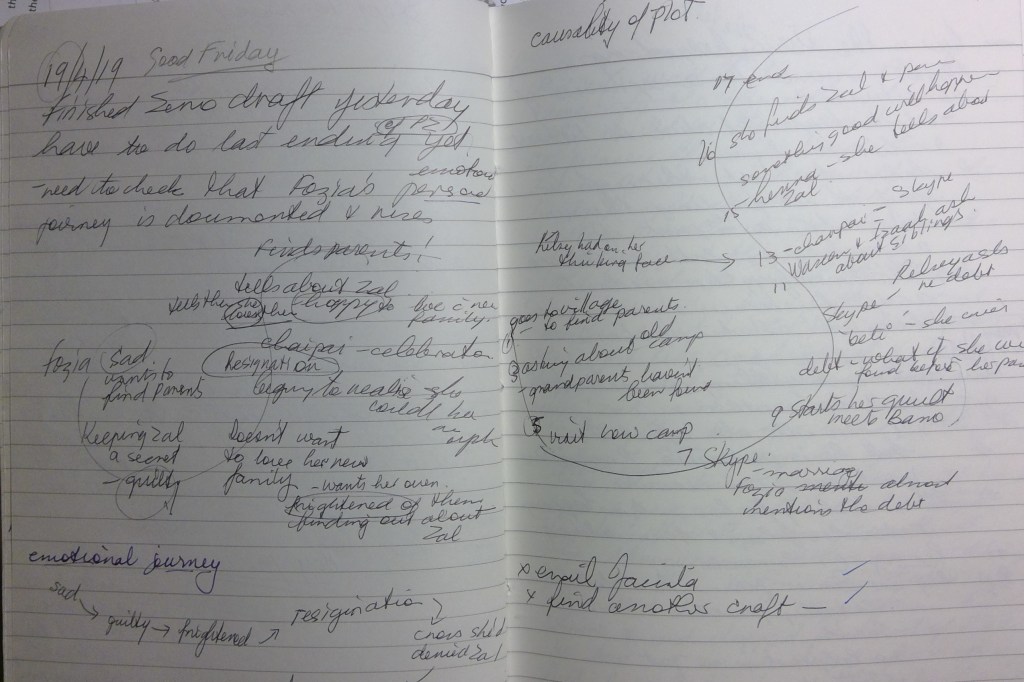 19/4/19 Good Friday
finished zero draft yesterday
have to do last ending (of P2) yet
emotional
-need to check that Fozia's personal
journey is documented & rises
finds parents!
tells about Zal
tells them she loves them
happy to live c new
family.
chaipai - celebration
Fozia sad
wants to
find parents
Resignation
begins to realise she
could be
an
orph
Keeping Zal
a secret
- guilty
Doesn't want
to love her new
family - wants her own.
frightened of them
finding out about
Zal
emotional journey
sad
guilty → frightened
resigination
cross she'd
denied Zal
causality of plot.
17 end
16 she finds Zal &
something good will happen
15 - henna - she tells about
Zal
13 - chaipai - Skype
Waseem & Izaah ask
about siblings.
Kelsey had on her
thinking face →
11
Skype - Kelsey asks
re debt
beti - she cries
debt - what if she
found before her
9 starts her guilt
meets Bano,
7 Skype.
- marriage
Fozia almost
mentions the debt
1 goes to village
- to find parents.
3 asking about old
camp
- grandparents haven't
been found
5 visit new camp
x email Jacinta
x find another craft -